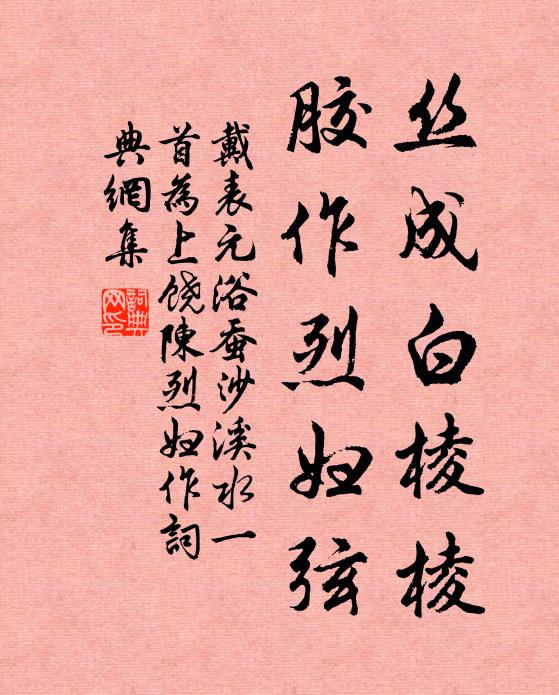 丝成白棱棱
胶作烈妇弦
戴表元浴蚕沙溪水一
首為上饶陳烈妇作詞
典網集
詞典网印